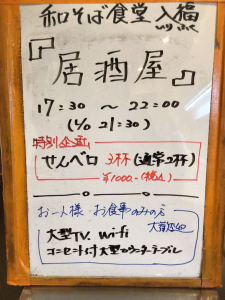 和そば食堂 入福
いり ふく
『居酒屋』
17:30 〜 22:00
(L/O 21:30)
特別企画!
せんベロ 3杯(通常2杯)
¥1000-(税込)
お一人様 お食事のみの方
大歓迎
大型TV. wifi
コンセント付大型カウンターテーブル